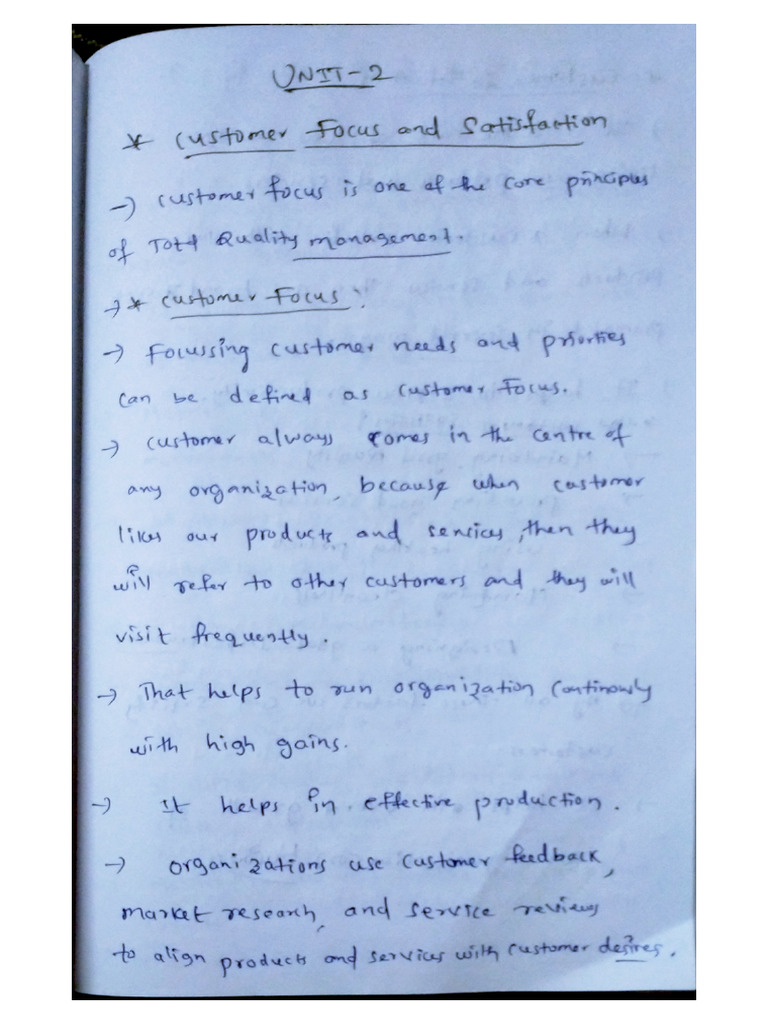 UNIT-2
* Customer Focus and Satisfaction
→ Customer focus is one of the core principles
of Total Quality management.
→ * Customer Focus.
→ Focussing customer needs and priorities
can be defined as customer Focus.
→ customer always comes in the centre of
any organization, because when customer
likes our products and services, then they
will refer to other customers and they will
visit frequently.
→ That helps to run organization continously
with high gains.
→ It helps in effective production.
→ organizations use customer feedback,
market research, and service reviews
to align products and services with customer desires.